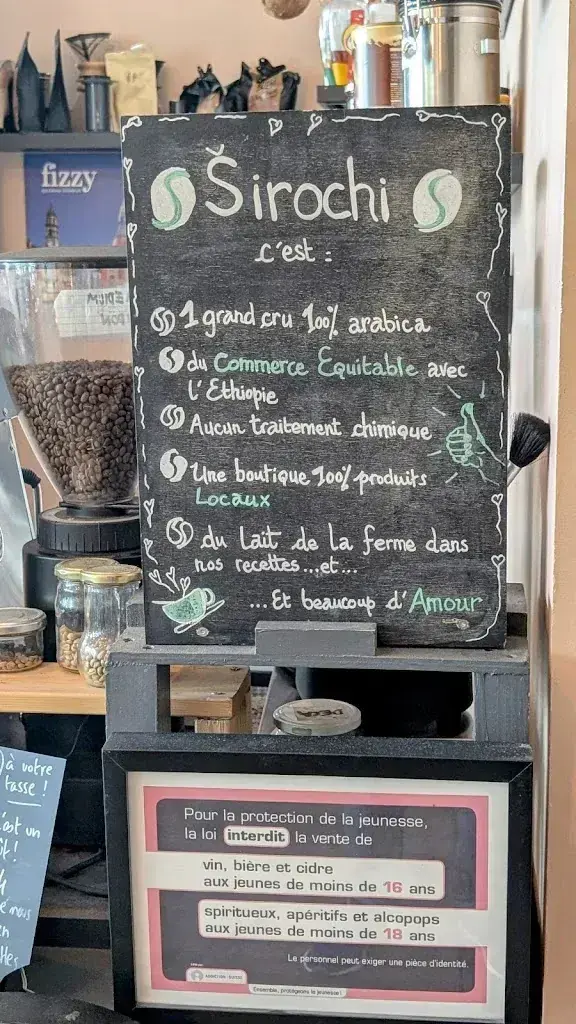 fizzy
Širochi
c'est :
1 grand cru 100% arabica
du Commerce Equitable avec
l'Ethiopie
Aucun traitement chimique
Une boutique 100% produits
Locaux
du Lait de la ferme dans
nos recettes...et...
...Et beaucoup d'Amour
à votre
tasse !
Pour la protection de la jeunesse,
la loi interdit la vente de
vin, bière et cidre
aux jeunes de moins de 16 ans
spiritueux, apéritifs et alcopops
aux jeunes de moins de 18 ans
Le personnel peut exiger une pièce d'identité.
Ensemble, protégeons la jeunesse !